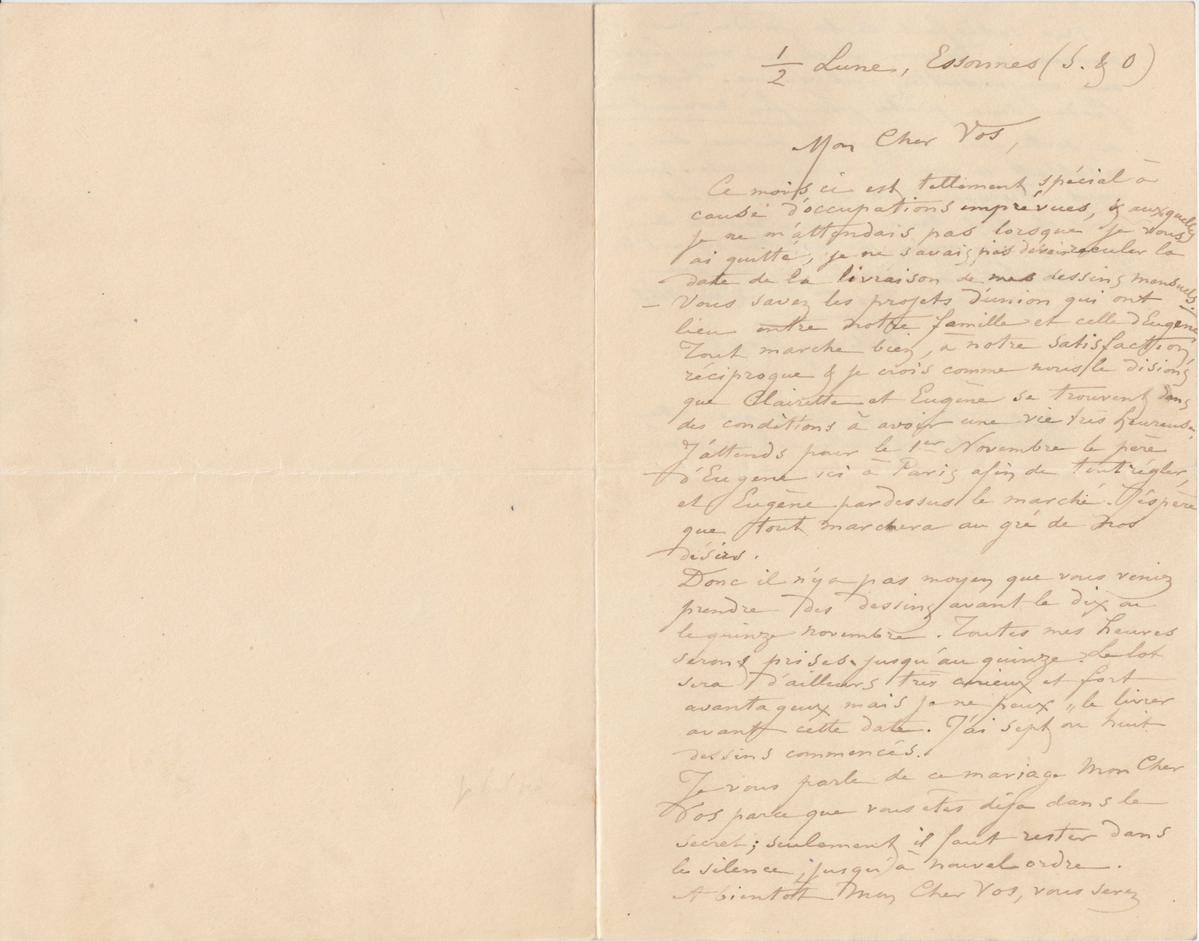 1/2 Lune, Essonnes (S. & O)
Mon Cher Vos,
Ce mois ci est tellement spécial à
cause d'occupations imprévues, & auxquelles
je ne m'attendais pas lorsque je vous
ai quitté, je ne savais pas devoir reculer la
date de la livraison de mes dessins mensuels.
– Vous savez les projets d'union qui ont
lieu entre notre famille et celle d'Eugène
Tout marche bien, à notre satisfaction
réciproque & je crois comme nous le disions
que Clairette et Eugène se trouvent dans
des conditions à avoir une vie très heureuse.
J'attends pour le 1er Novembre le père
d'Eugène ici à Paris afin de tout régler,
et Eugène par dessus le marché. J'espère
que tout marchera au gré de nos
désirs.
Donc il n'y a pas moyen que vous veniez
prendre des dessins avant le dix ou
le quinze novembre. Toutes mes heures
seront prises jusqu'au quinze. Le lot
sera d'ailleurs très curieux et fort
avantageux mais je ne peux le livrer
avant cette date. J'ai sept ou huit
dessins commencés.
Je vous parle de ce mariage Mon Cher
Vos parce que vous êtes déja dans le
secret; seulement il faut rester dans
le silence, jusqu'à nouvel ordre.
A bientôt Mon Cher Vos, vous serez